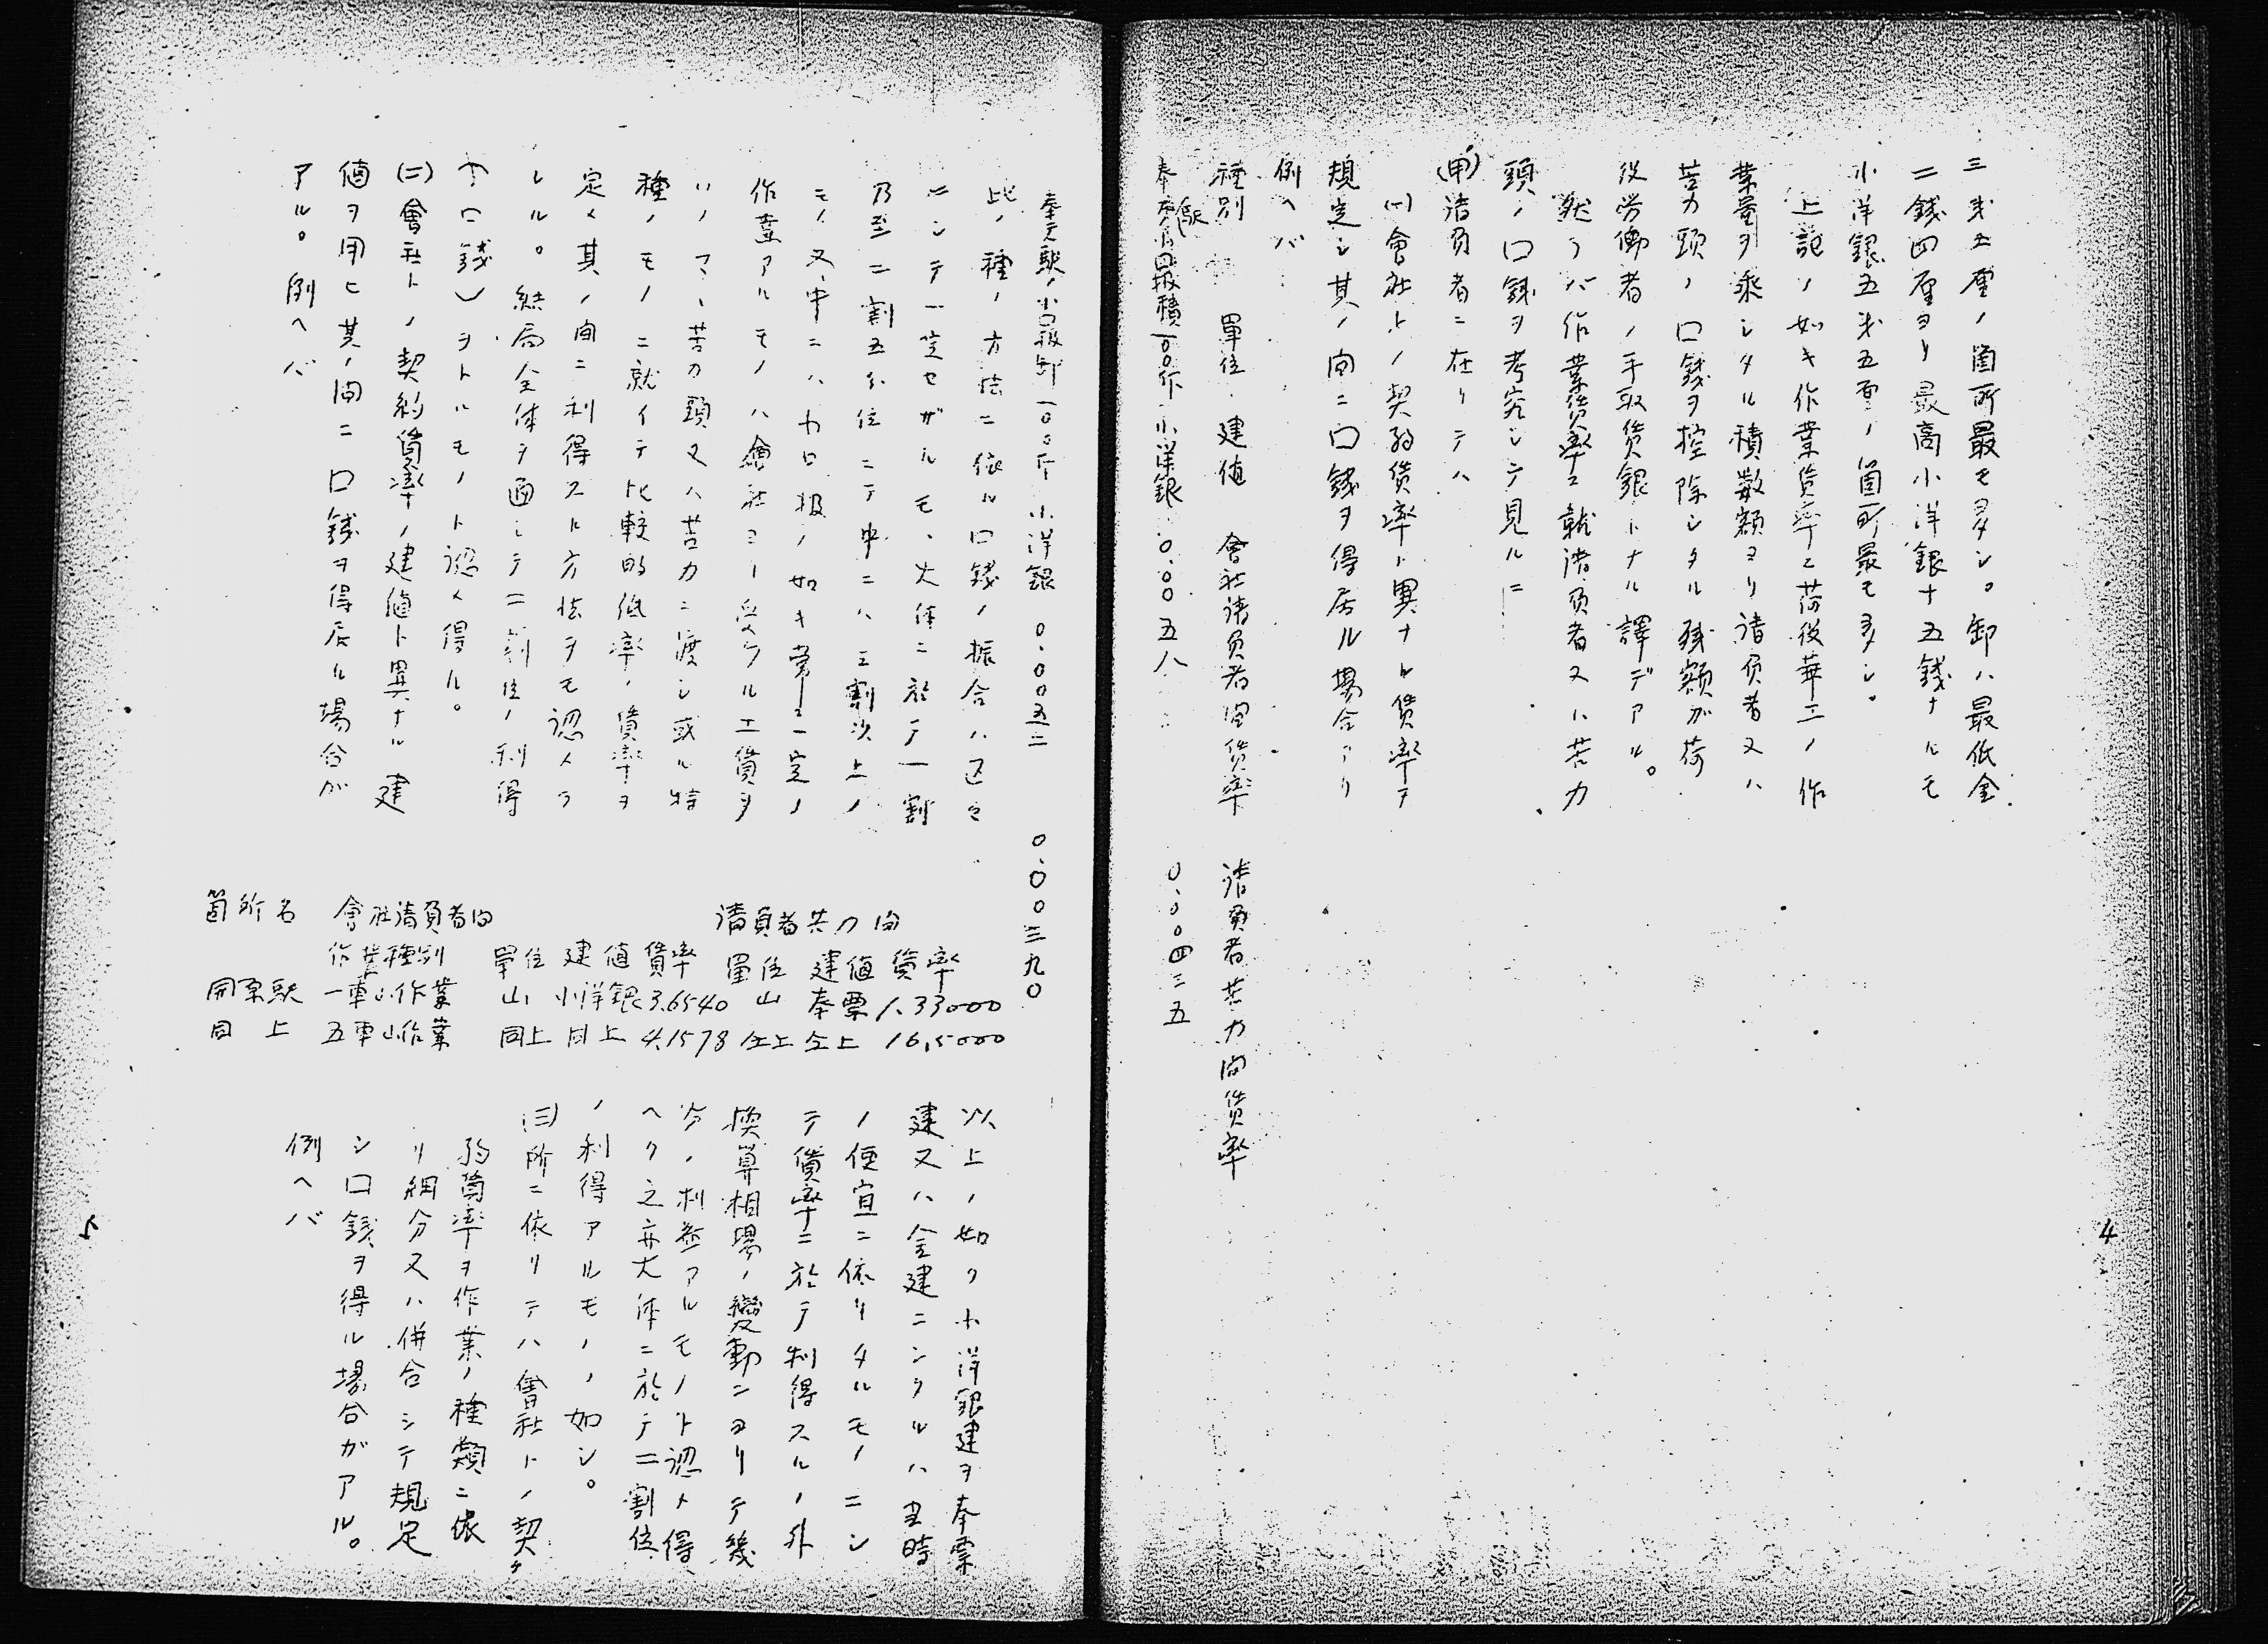 三米五厘ノ箇所最モ多シ。卸ハ最低金
二銭四厘ヨリ最高小洋銀十五銭ナルモ
小洋銀五米五厘ノ箇所最モ多シ。
上記ノ如キ作業賃率ニ荷役華工ノ作
業量ヲ乘シタル積數額ヨリ請負者又ハ
苦力頭ノ口銭ヲ控除シタル殘額ガ荷
役労働者ノ手取賃銀トナル譯デアル。
然ラバ作業賃率ニ就請負者又ハ苦力
頭ノ口銭ヲ考究シテ見ルニ
(甲)請負者ニ在リテハ
(一)會社トノ契約賃率ト異ナル賃率ヲ
規定シ其ノ間ニ口銭ヲ得居ル場合アリ
例ヘバ
種別 單位 建値 會社請負者間賃率 請負者苦力間賃率
奉天駅小口扱積一〇〇斤 小洋銀 〇.〇〇五八 〇.〇〇四三五
4
奉天駅小口扱卸一〇〇斤 小洋銀 〇.〇〇五二 〇.〇〇三九〇
此ノ種ノ方法ニ依ル口銭ノ振合ハ區々
ニシテ一定セザルモ、大体ニ於テ一割
乃至二割五分位ニテ中ニハ三割以上ノ
モノ又中ニハ小口扱ノ如キ第一一定ノ
作業アルモノハ會社ヨリ受クル工賃ヲ
ソノマヽ苦力頭又ハ苦力ニ渡シ或ル特
種ノモノニ就イテ比較的低率ノ賃率ヲ
定メ其ノ間ニ利得スル方法ヲモ認メラ
レル。結局全体ヲ通シテ二割位ノ利得
(口銭)ヲトルモノト認メ得ル。
(二)會社トノ契約賃率ノ建値ト異ナル建
値ヲ用ヒ其ノ間ニ口銭ヲ得居ル場合ガ
アル。例ヘバ
箇所名 會社請負者間 請負者苦力間
作業種別 單位 建値 賃率 單位 建値 賃率
開原駅 一車山作業 山 小洋銀 3.6540 山 奉票 1.33000
同上 五車山作業 同上 同上 4.1578 仝上 仝上 16.5000
以上ノ如ク小洋銀建ヲ奉票
建又ハ金建ニシタルハ當時
ノ便宜ニ依リタルモノニシ
テ賃率ニ於テ利得スルノ外
換算相場ノ變動ニヨリテ幾
分ノ利益アルモノト認メ得
ヘク之亦大体ニ於テ二割位
ノ利得アルモノノ如シ。
(三)所ニ依リテハ會社トノ契
約賃率ヲ作業ノ種類ニ依
リ細分又ハ併合シテ規定
シ口銭ヲ得ル場合ガアル。
例ヘバ
5